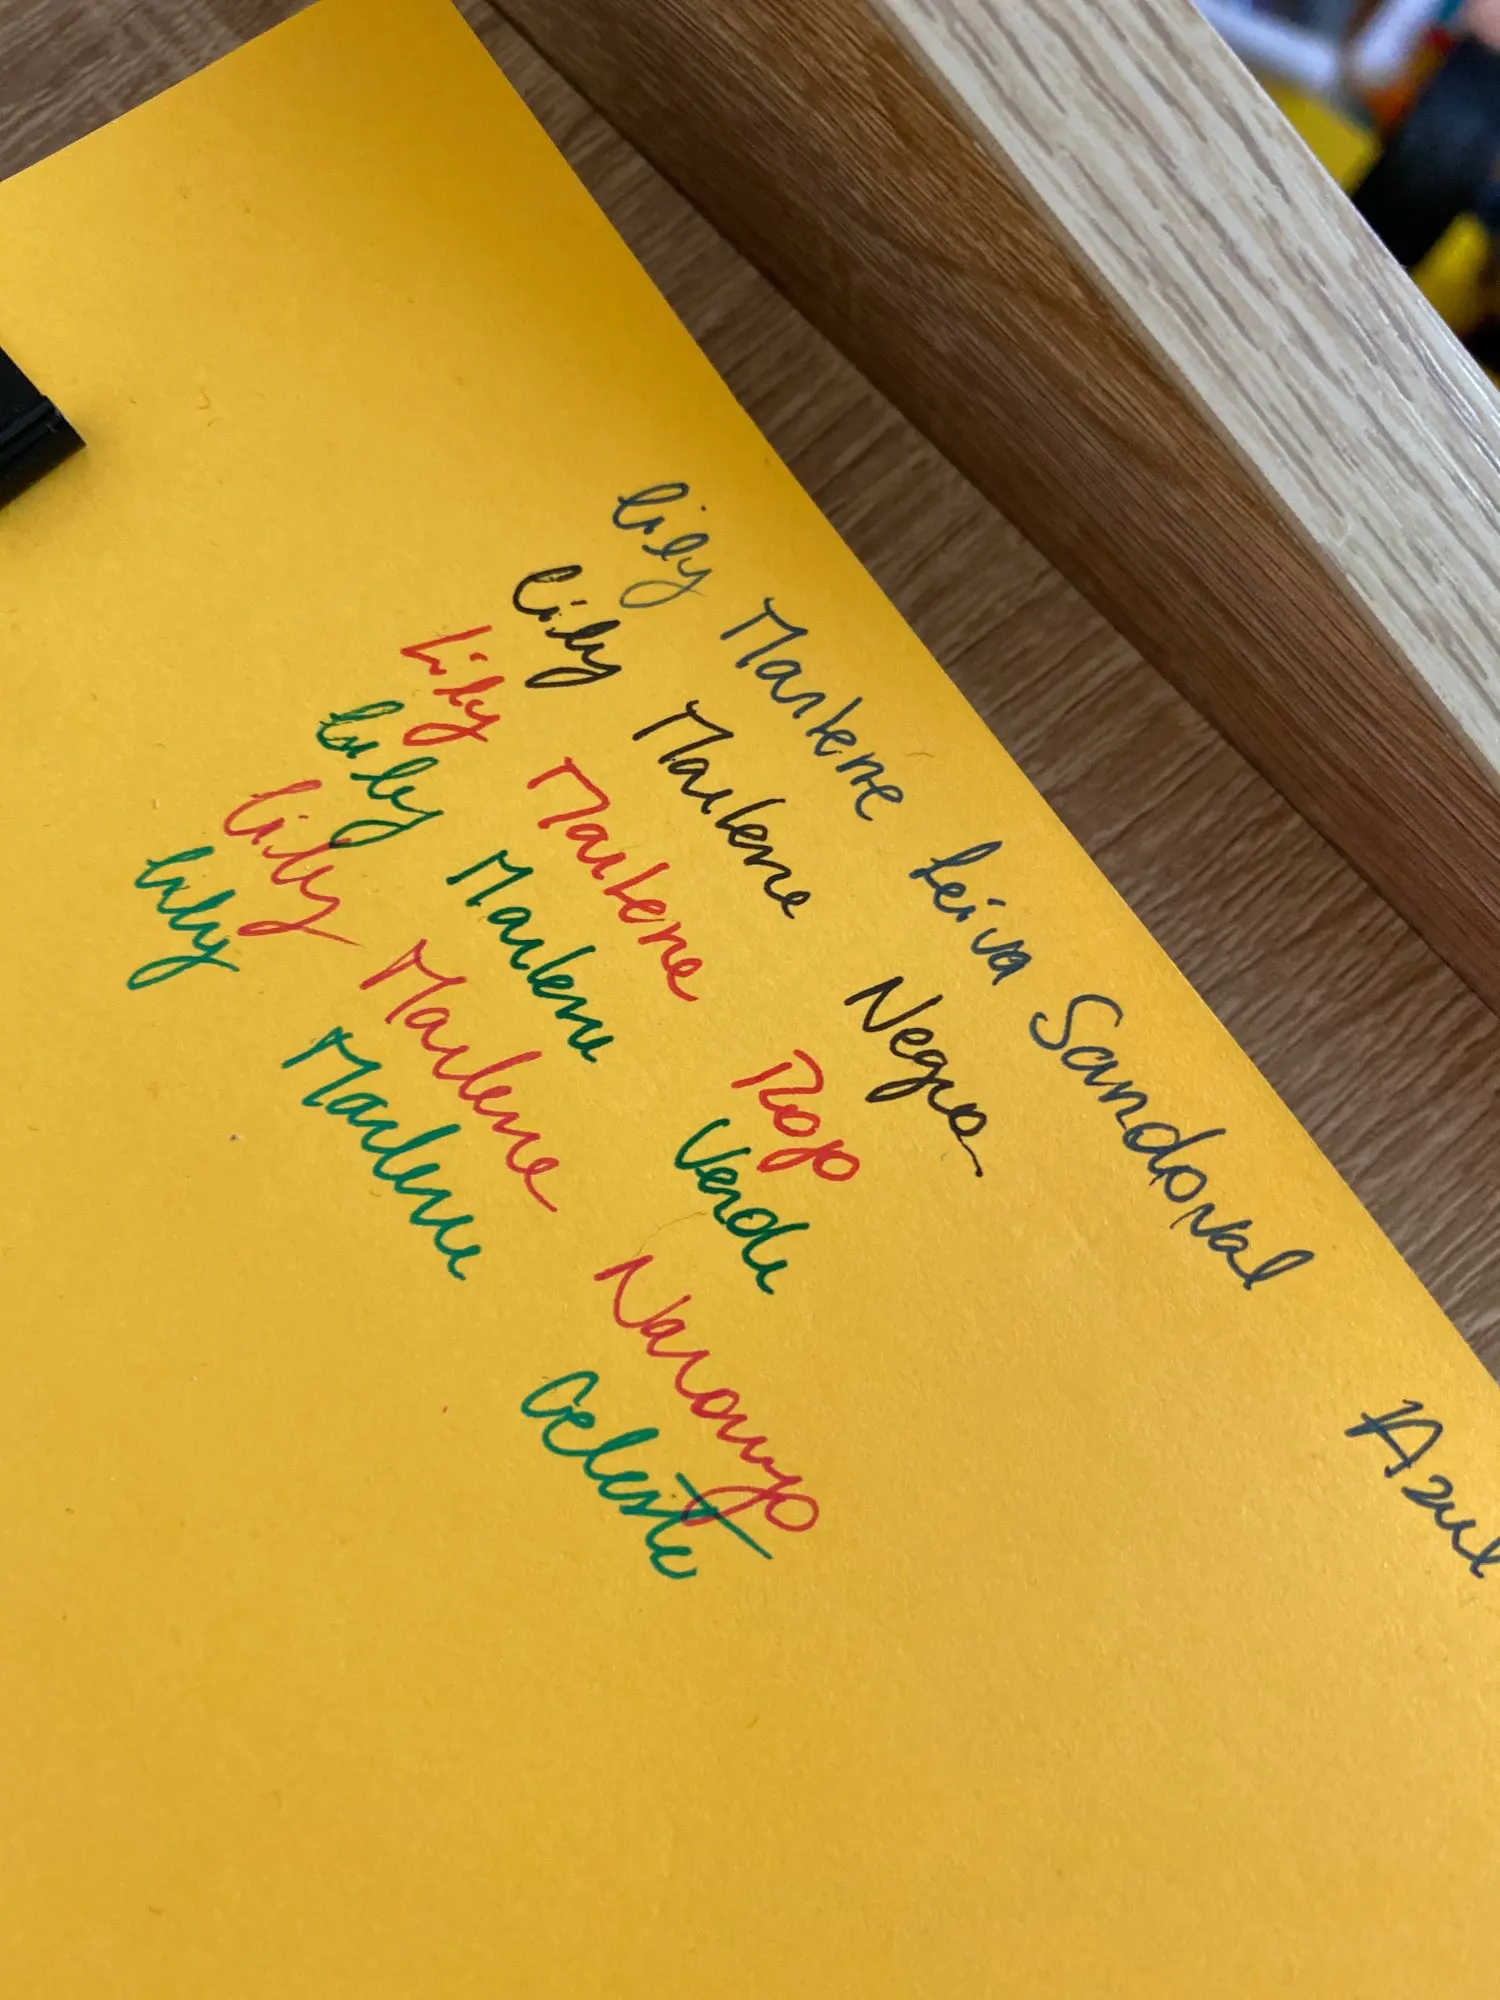 Lily Marlene Leiva Sandoval Azul
Lily Marlene Negro
Lily Marlene Rojo
Lily Marlene Verde
Lily Marlene Naranjo
Lily Marlene Celeste